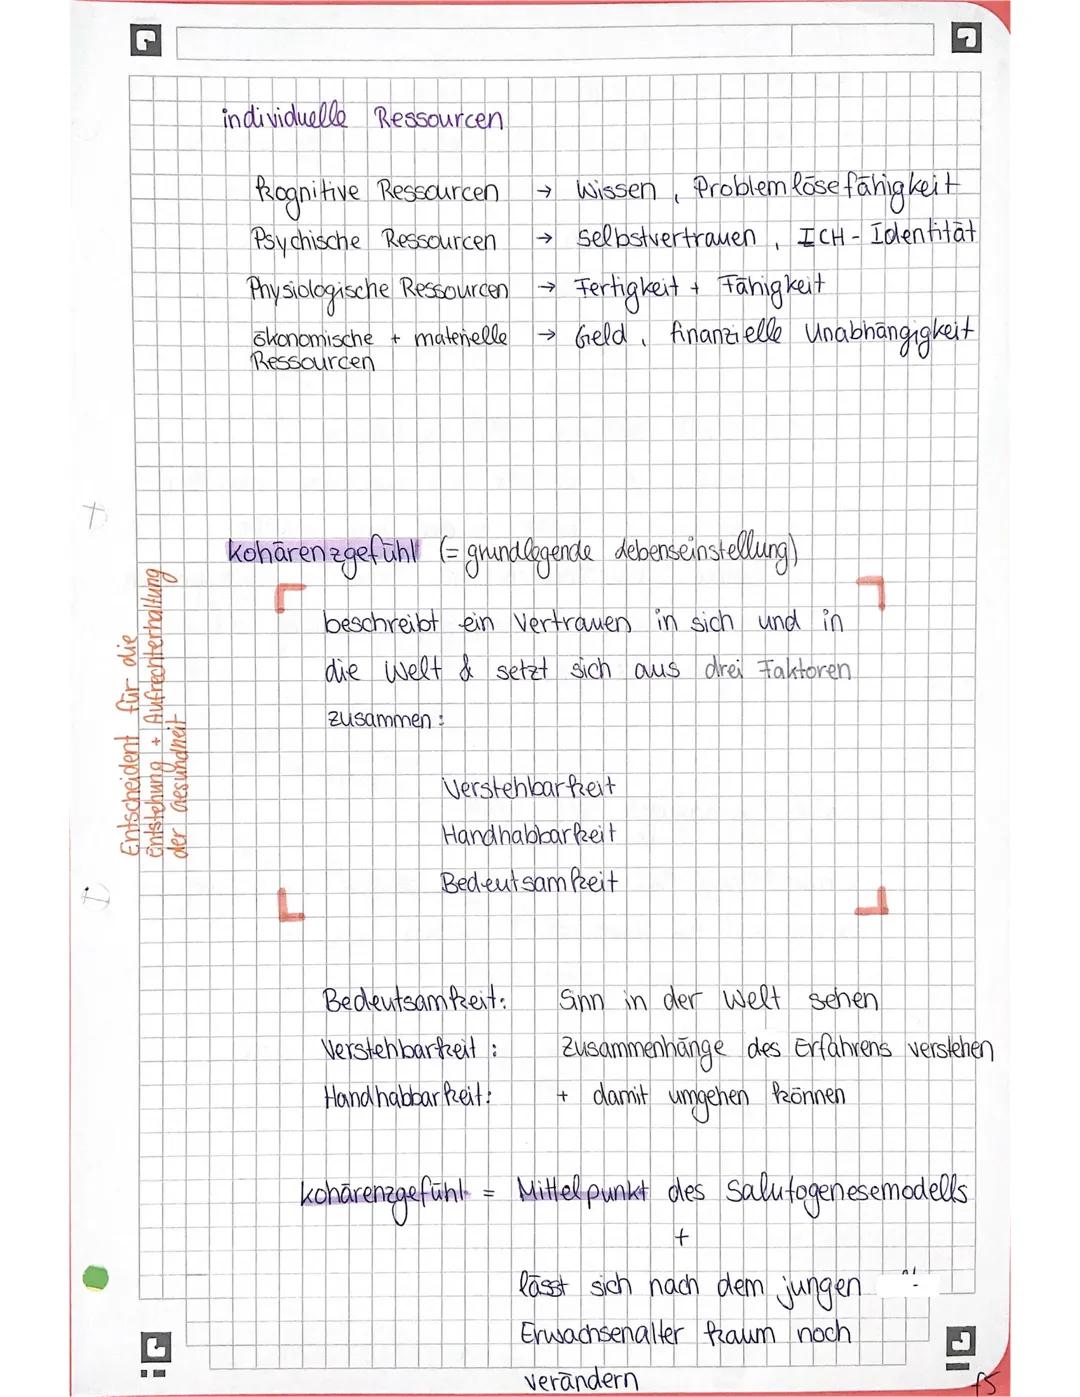 individuelle Ressourcen
kognitive Ressourcen → Wissen, Problemlösefähigkeit
Psychische Ressourcen → Selbstvertrauen, ICH-Identität
Physiologische Ressourcen → Fertigkeit + Fähigkeit
ökonomische + materielle → Geld, finanzielle Unabhängigkeit
Ressourcen
Kohärenzgefühl (= grundlegende Lebenseinstellung)
beschreibt ein Vertrauen in sich und in
die Welt & setzt sich aus drei Faktoren
zusammen:
Verstehbarkeit
Handhabbarkeit
Bedeutsamkeit
Entscheident für die
Entstehung + Aufrechterhaltung
der Gesundheit
Bedeutsamkeit: Sinn in der Welt sehen
Verstehbarkeit: Zusammenhänge des Erfahrens verstehen
Handhabbarkeit: + damit umgehen können
Kohärenzgefühl = Mittelpunkt des Salutogenesemodells
+
lässt sich nach dem jungen
Erwachsenalter kaum noch
verändern